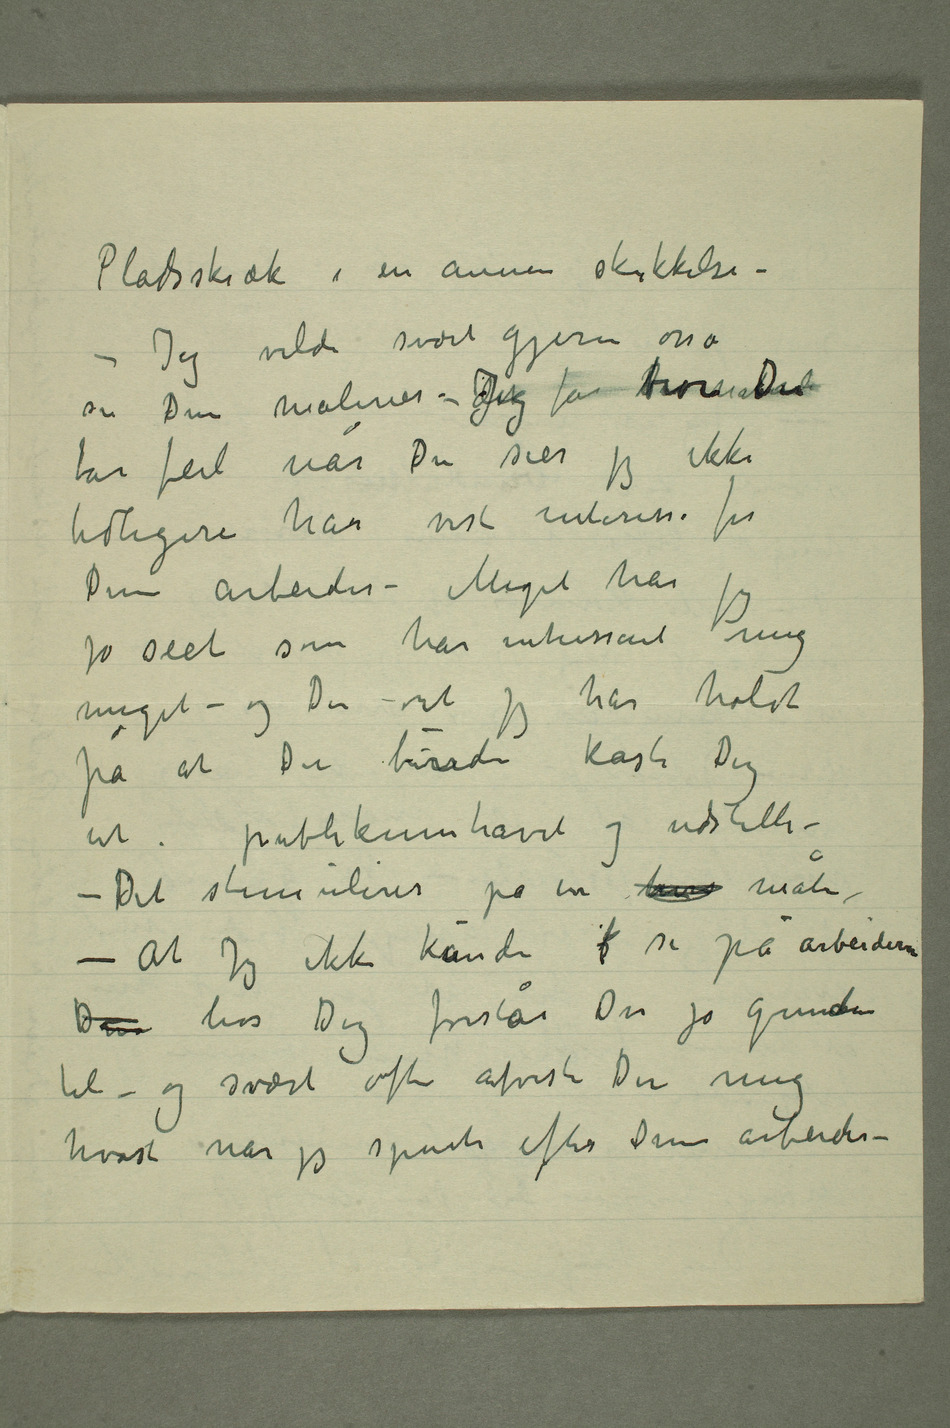 Pladsskræk i en annen skikkelse –
– Jeg vilde svært gjerne osså
se Dine malerier – Jeg tror Du
tar feil når Du sier jeg ikke
tidligere har vist interesse for
Dine arbeider – Meget har jeg
jo seet som har intressert mig
meget – og Du vet jeg har holdt
på at Du burde kaste Dig
ut i publikumhavet og udstille –
– Det stimulerer på en måte –
– At Jeg ikke kunde se på arbeiderne
hos Dig forstår Du jo grunden
til – og svært ofte afviste Du mig
hvast når jeg spurte efter Dine arbeider –